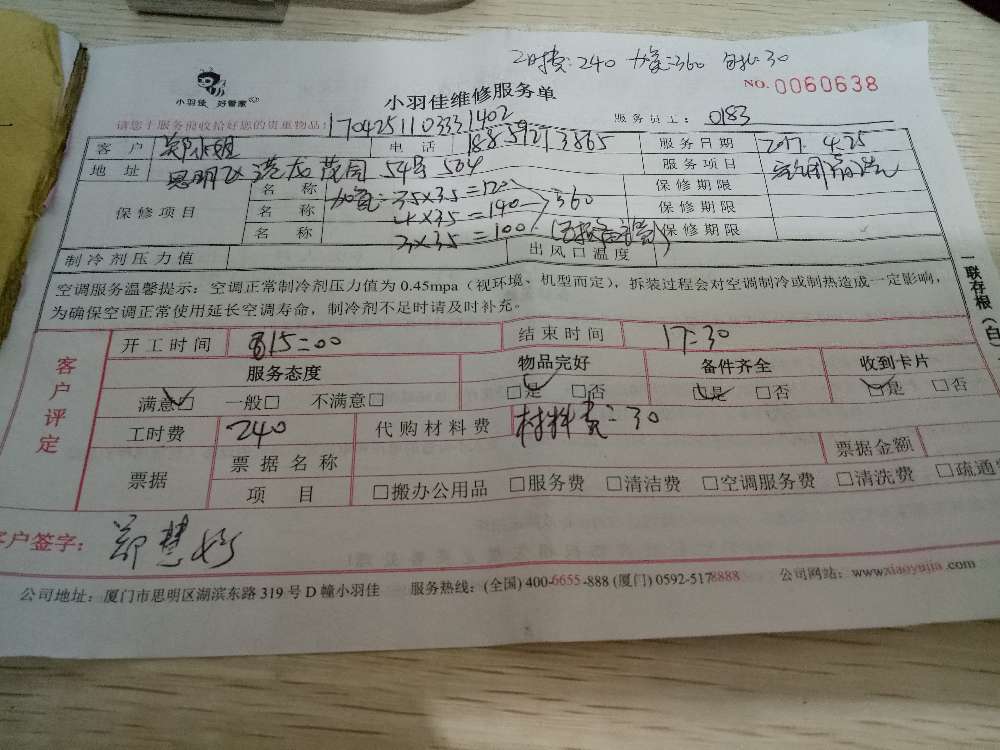 工时费:240 加氟:360 材料30
小羽佳 好管家
小羽佳维修服务单
NO. 0060638
请您于服务前收拾好您的贵重物品:
1704251103331402
服务员工: 0183
客户 郑小姐 电话 服务日期 2017.4.25
地址 思明区 54号 504 服务项目
保修项目
名称 加氟:35×3.5=120 保修期限
名称 4×35=140 360 保修期限
名称 3×35=100 保修期限
制冷剂压力值 出风口温度
空调服务温馨提示:空调正常制冷剂压力值为 0.45mpa(视环境、机型而定),拆装过程会对空调制冷或制热造成一定影响,
为确保空调正常使用延长空调寿命,制冷剂不足时请及时补充。
一联存根(白)
客户评定
开工时间 15:00 结束时间 17:30
服务态度 物品完好 备件齐全 收到卡片
满意□ 一般□ 不满意□ □是 □否 □是 □否 □是 □否
工时费 240 代购材料费 材料费:30
票据 票据名称 票据金额
项目 □搬办公用品 □服务费 □清洁费 □空调服务费 □清洗费 □疏通
客户签字: 郑慧
公司地址:厦门市思明区湖滨东路 319 号 D 幢小羽佳 服务热线:(全国) 400-6655-888 (厦门) 0592-5178888 公司网站:www.xiaoyujia.com